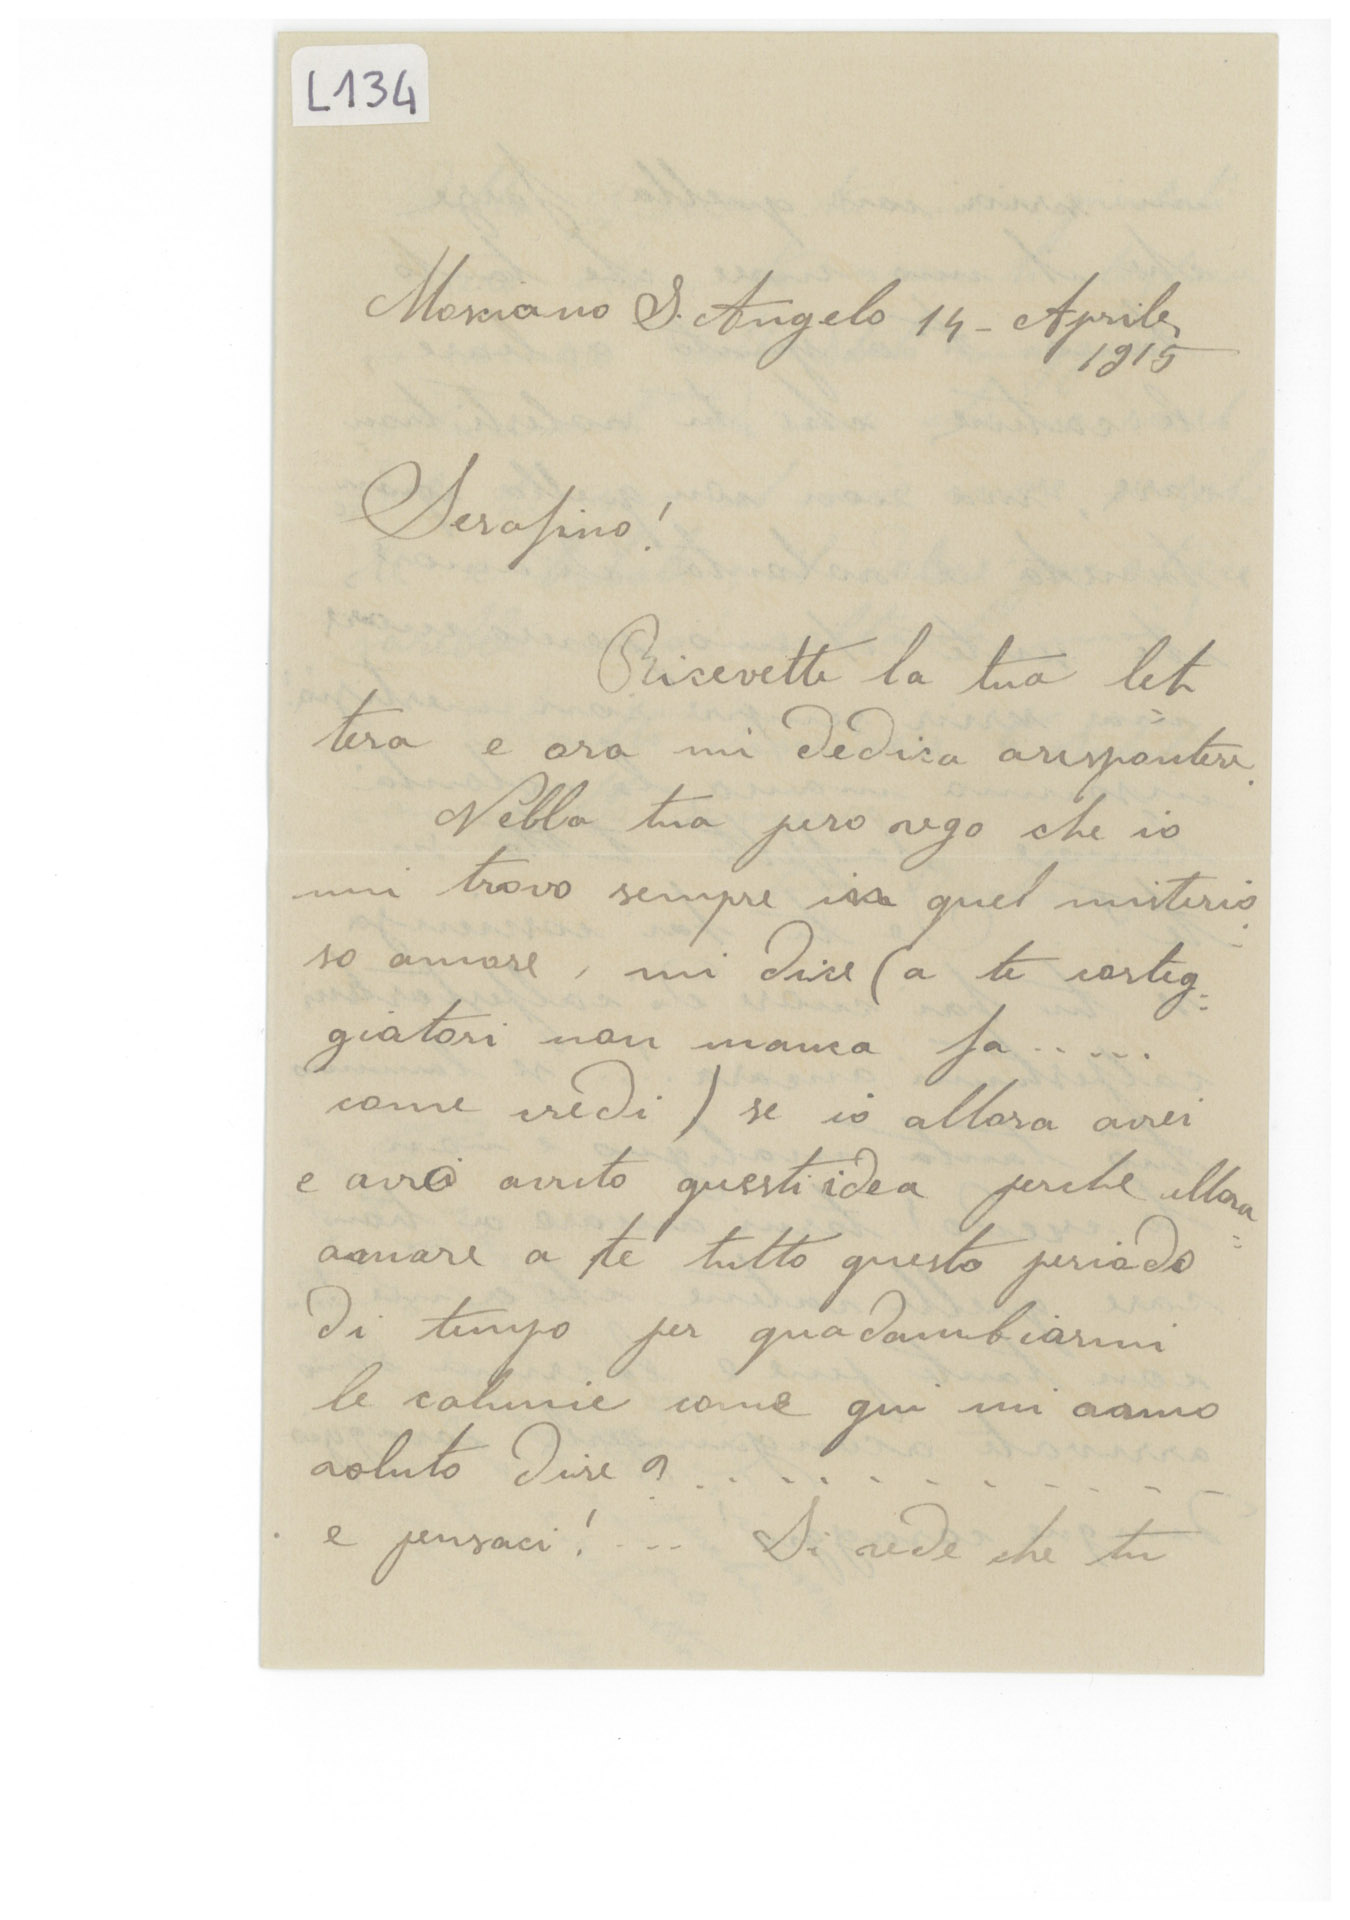 L134
Mosciano S. Angelo 14 - Aprile
1915
Serafino!
Ricevette la tua let
tera e ora mi dedica arespontere.
Nella tua pero vego che io
mi trovo sempre in quel misterio
so amore, mi dice (a te corteg=
giatori non manca fa.....
come credi) se io allora avrei
e avrò avuto questi idea perche allora=
amare a te tutto questo periodo
di tempo per guadambiarmi
le calunie come qui mi anno
voluto dire? . . . . . . . . . . . .
e pensaci! ... Si vede che tu